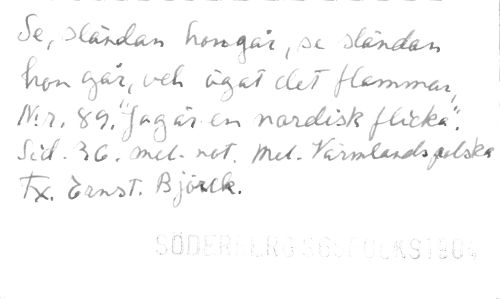 Se, sländan hon går, se sländan
hon går, och ögat det flammar,
N:r. 89. "Jag är en nordisk flicka".
Sid. 36. mel. not. Mel. Värmlandspolska
Fx. Ernst. Björck.
SÖDERBERG